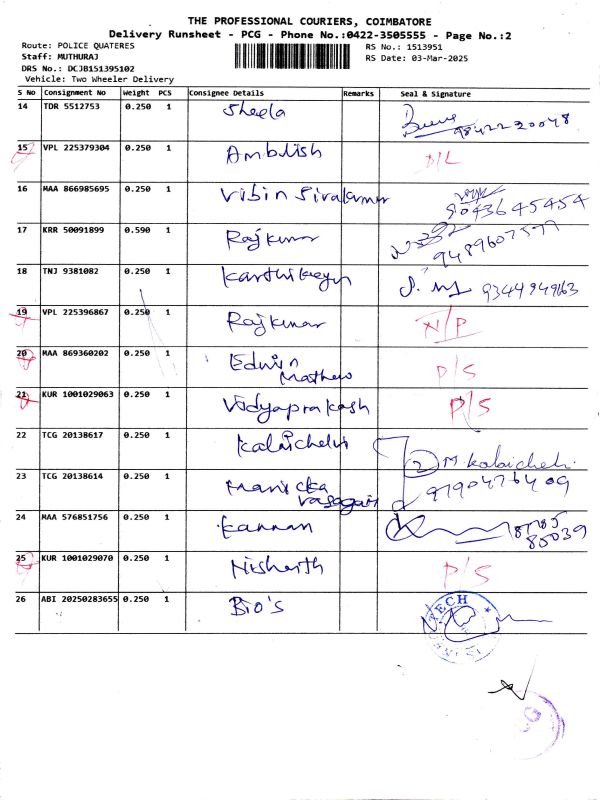 THE PROFESSIONAL COURIERS, COIMBATORE
Delivery Runsheet - PCG - Phone No.:0422-3505555 - Page No.:2
Route: POLICE QUATERES RS No.: 1513951
Staff: MUTHURAJ RS Date: 03-Mar-2025
DRS No.: DCJB151395102
Vehicle: Two Wheeler Delivery
S No Consignment No Weight PCS Consignee Details Remarks Seal & Signature
14 TDR 5512753 0.250 1 Sheela 9842220048
15 VPL 225379304 0.250 1 Ambdish D/L
16 MAA 866985695 0.250 1 Vibin Sivakumar 9043645454
17 KRR 50091899 0.590 1 Rajkumar 9489607577
18 TNJ 9381082 0.250 1 Karthikeyn 9344949163
19 VPL 225396867 0.250 1 Rajkumar N/P
20 MAA 869360202 0.250 1 Edwin Mathew P/S
21 KUR 1001029063 0.250 1 Vidyaprakash P/S
22 TCG 20138617 0.250 1 Kalaichelvi 2 M.Kalaichelvi
23 TCG 20138614 0.250 1 Manicka Vasagam 9790476409
24 MAA 576851756 0.250 1 Kannan 87785 85039
25 KUR 1001029070 0.250 1 Nishanth P/S
26 ABI 20250283655 0.250 1 Bio's TECH